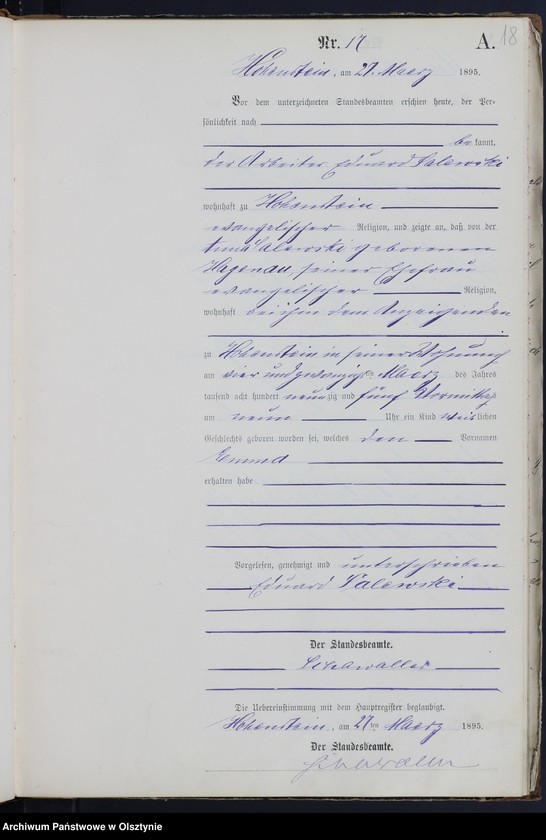 Nr. 17
A. 18
Hohenstein, am 27. Maerz 1895.
Vor dem unterzeichneten Standesbeamten erschien heute, der Per-
sönlichkeit nach
bekannt,
der Arbeiter Eduard Salewski
wohnhaft zu Hohenstein
evangelischer Religion, und zeigte an, daß von der
Salewski geborenen
Hagenau, seiner Ehefrau
evangelischer Religion,
wohnhaft bei ihm dem Anzeigenden
zu Hohenstein in seiner Wohnung
am vier und zwanzigsten Maerz des Jahres
tausend acht hundert neunzig und fünf Vormittags
um neun Uhr ein Kind weiblichen
Geschlechts geboren worden sei, welches den Vornamen
Emma
erhalten habe
Vorgelesen, genehmigt und unterschrieben
Eduard Salewski
Der Standesbeamte.
Die Uebereinstimmung mit dem Hauptregister beglaubigt.
Hohenstein, am 27ten Maerz 1895.
Der Standesbeamte.
Archiwum Państwowe w Olsztynie